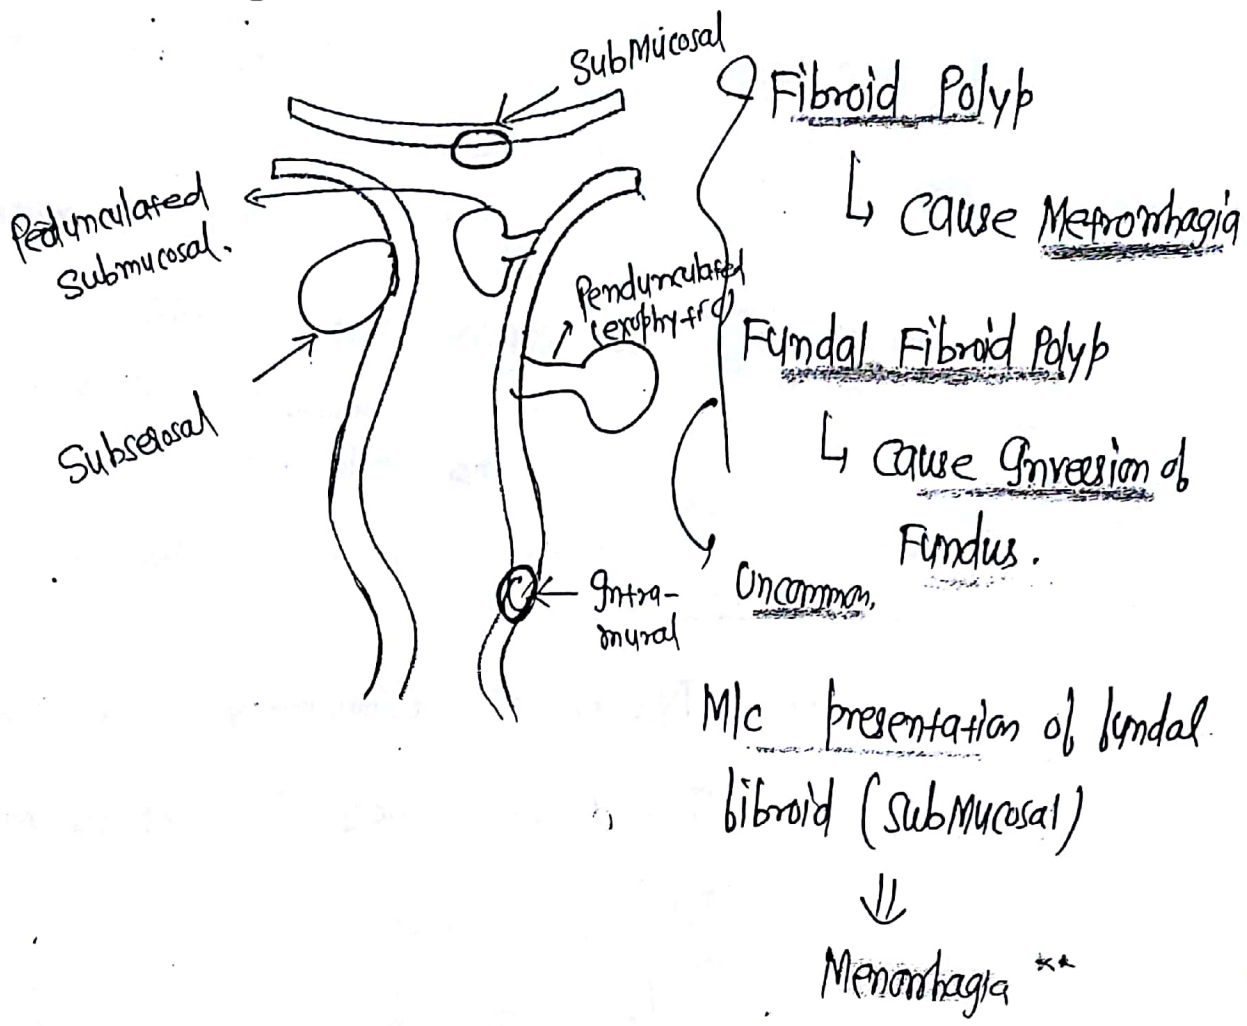 SubMucosal
Pedunculated
submucosal.
Subserosal
Pendunculated
(exophytic)
Intra-
mural
Fibroid Polyp
↳ cause Metrorrhagia
Fundal Fibroid Polyp
↳ cause Inversion of
Fundus.
Uncommon.
M/c presentation of fundal
fibroid (SubMucosal)
⇓
Menorrhagia **